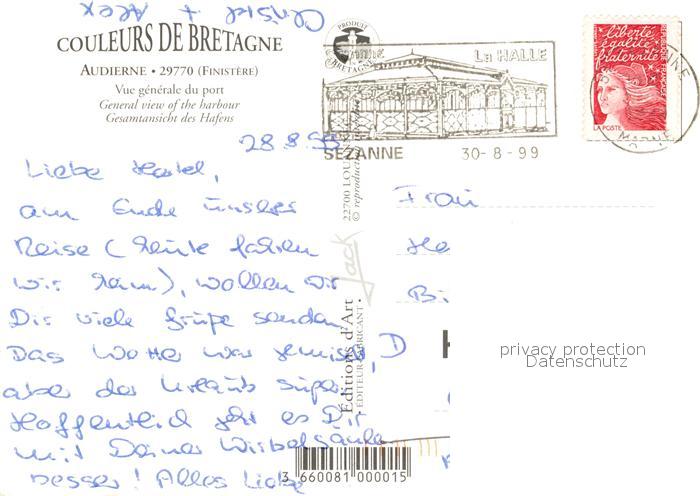 COULEURS DE BRETAGNE
AUDIERNE • 29770 (FINISTÈRE)
Vue générale du port
General view of the harbour
Gesamtansicht des Hafens
PRODUIT
BRETAGNE
SEZANNE
La HALLE
30-8-99
liberté
égalité
fraternité
LA POSTE
MARNE
28.8.99
Liebe
am Ende unserer
Reise (heute fahren
wir heim), wollen wir
Dir viele Grüße senden
Das Wetter war
aber der Urlaub super.
Hoffentlich geht es Dir
mit Deiner Wirbelsäule
besser! Alles Liebe
+ Alex
Frau
He
Bi
D
22700 LOU
© reproduc
Jack
Editions d'Art
• ÉDITEUR-FABRICANT •
3 660081 000015
privacy protection
Datenschutz